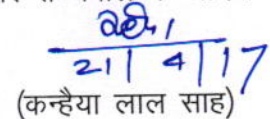 21/4/17
(कन्हैया लाल साह)